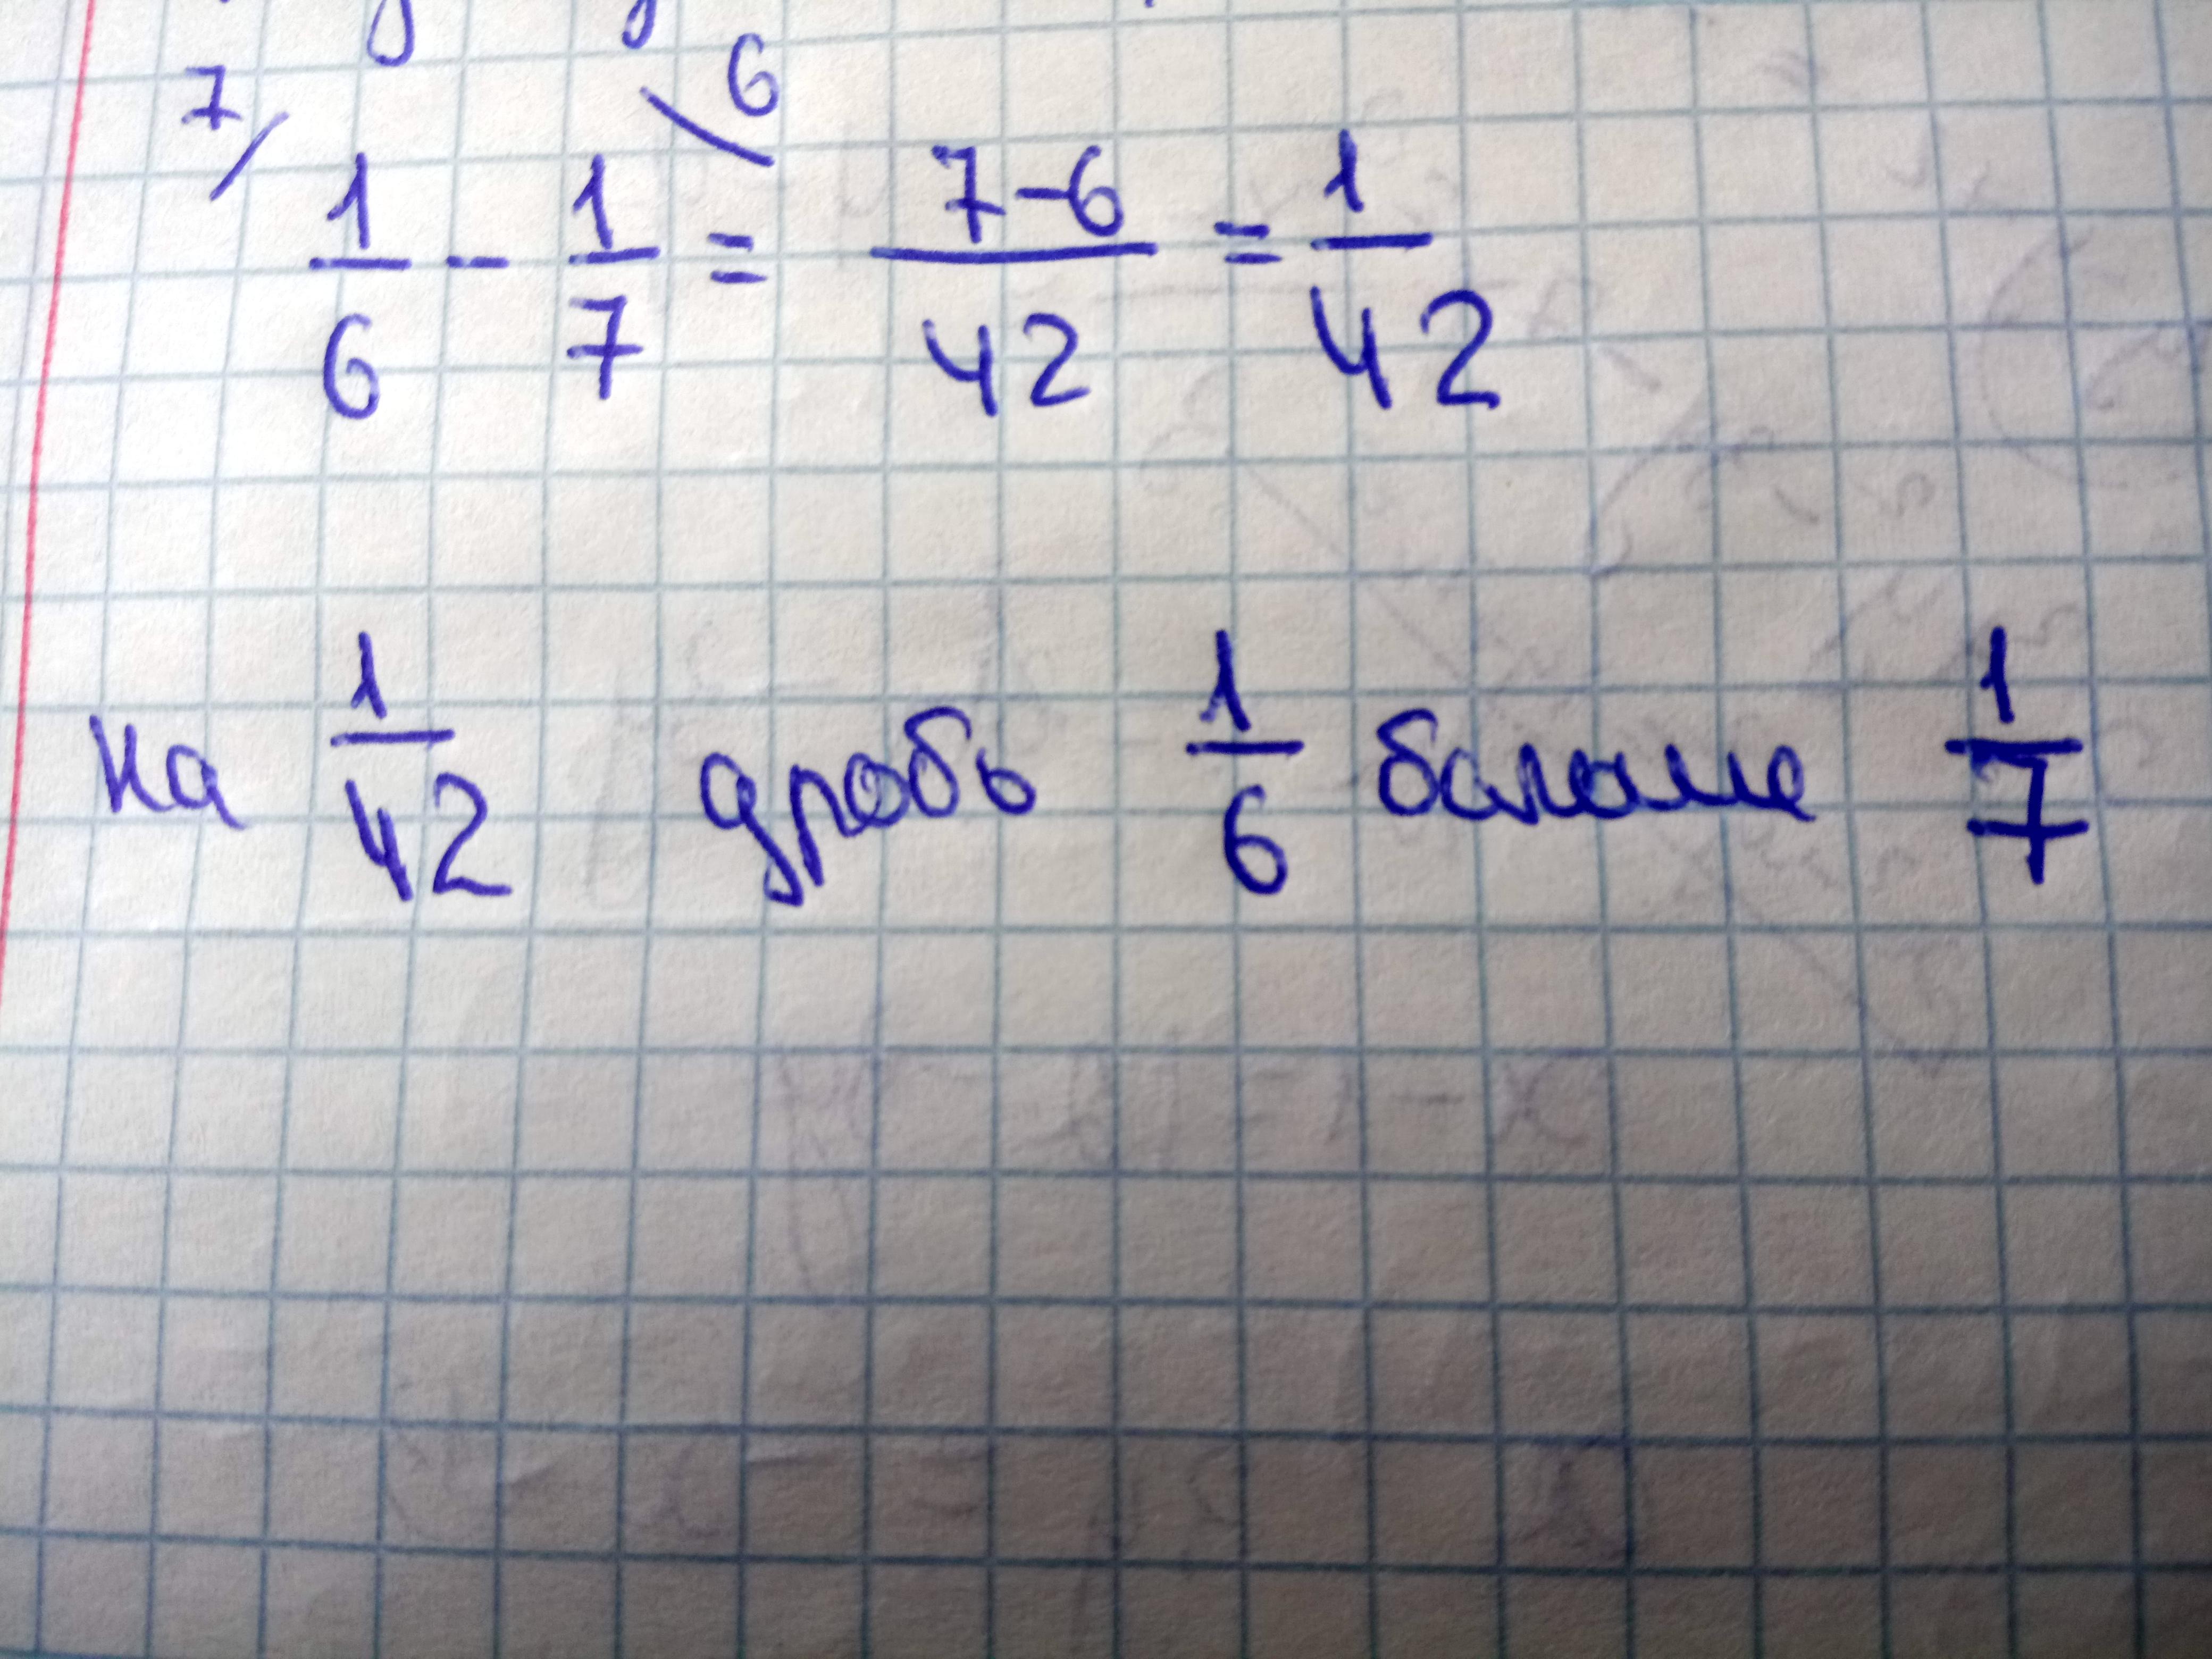 7/ 1/6 - 1/7 \6 = 7-6/42 = 1/42
на 1/42 дробь 1/6 больше 1/7